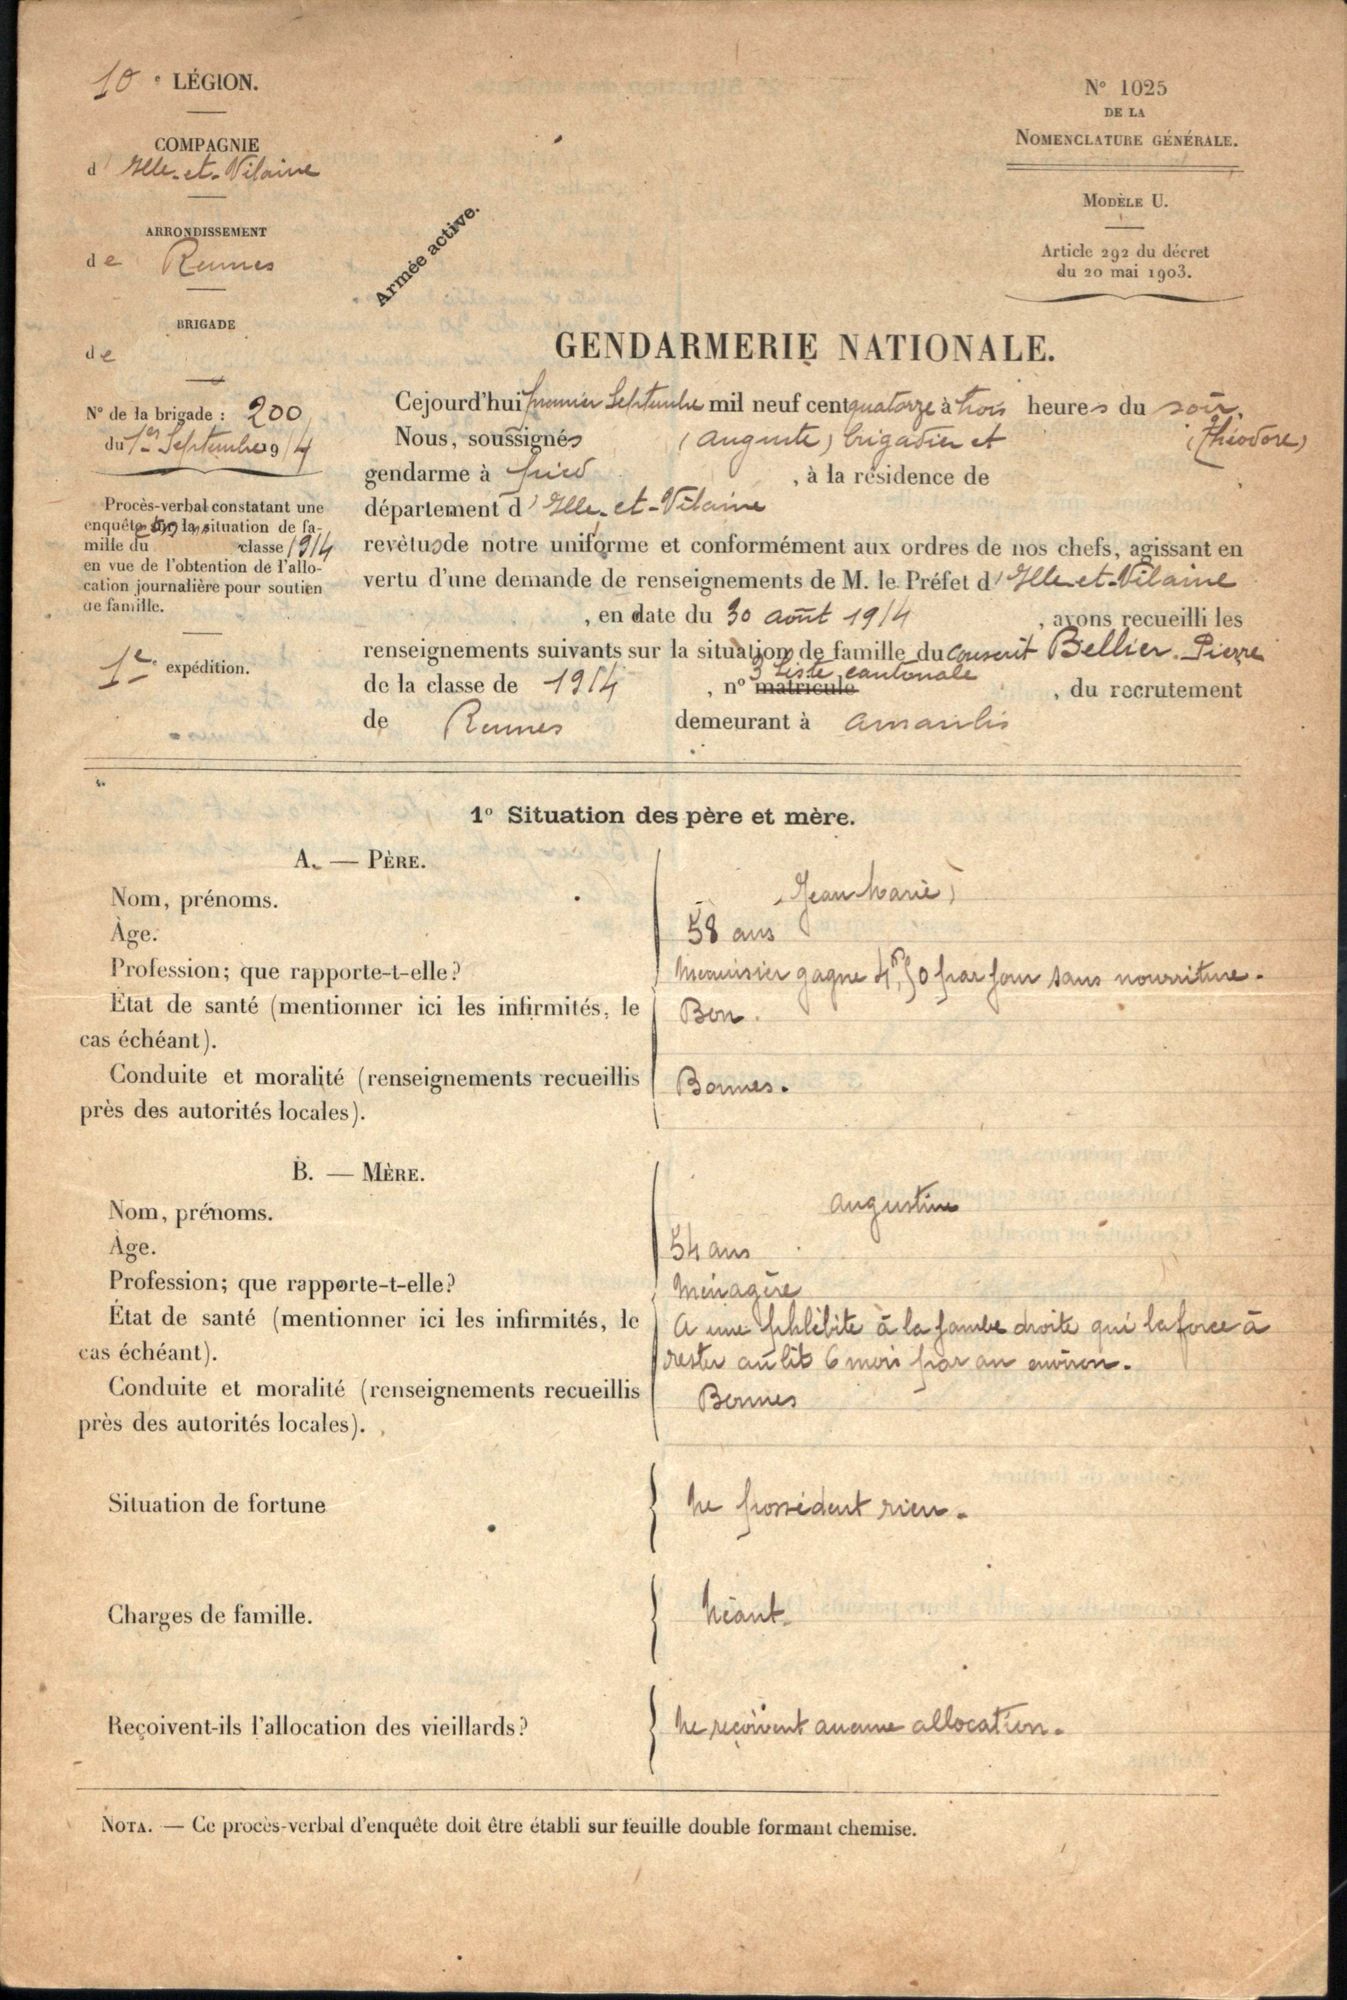 10e LÉGION.
COMPAGNIE
d'Ille-et-Vilaine
ARRONDISSEMENT
de Rennes
BRIGADE
de
N° de la brigade : 200
du 1er Septembre 1914
Procès-verbal constatant une
enquête sur la situation de fa-
mille du classe 1914
en vue de l'obtention de l'allo-
cation journalière pour soutien
de famille.
1e expédition.
Armée active.
N° 1025
DE LA
NOMENCLATURE GÉNÉRALE.
MODÈLE U.
Article 292 du décret
du 20 mai 1903.
GENDARMERIE NATIONALE.
Cejourd'hui premier Septembre mil neuf cent quatorze à trois heures du soir.
Nous, soussignés (Auguste) brigadier et (Théodore)
gendarme à pied , à la résidence de
département d'Ille-et-Vilaine
revêtus de notre uniforme et conformément aux ordres de nos chefs, agissant en
vertu d'une demande de renseignements de M. le Préfet d'Ille-et-Vilaine
, en date du 30 août 1914 , avons recueilli les
renseignements suivants sur la situation de famille du conscrit Bellier Pierre
de la classe de 1914 , n° matricule 3 liste cantonale , du recrutement
de Rennes demeurant à Amanlis
1° Situation des père et mère.
A. — PÈRE.
Nom, prénoms. (Jean Marie)
Âge. 58 ans
Profession; que rapporte-t-elle? Menuisier gagne 4f,50 par jour sans nourriture.
État de santé (mentionner ici les infirmités, le Bon.
cas échéant).
Conduite et moralité (renseignements recueillis Bonnes.
près des autorités locales).
B. — MÈRE.
Nom, prénoms. Augustine
Âge. 54 ans
Profession; que rapporte-t-elle? Ménagère
État de santé (mentionner ici les infirmités, le A une phlébite à la jambe droite qui la force à
cas échéant). rester au lit 6 mois par an environ.
Conduite et moralité (renseignements recueillis Bonnes
près des autorités locales).
Situation de fortune Ne possédent rien.
Charges de famille. Néant.
Reçoivent-ils l'allocation des vieillards? Ne reçoivent aucune allocation.
NOTA. — Ce procès-verbal d'enquête doit être établi sur feuille double formant chemise.